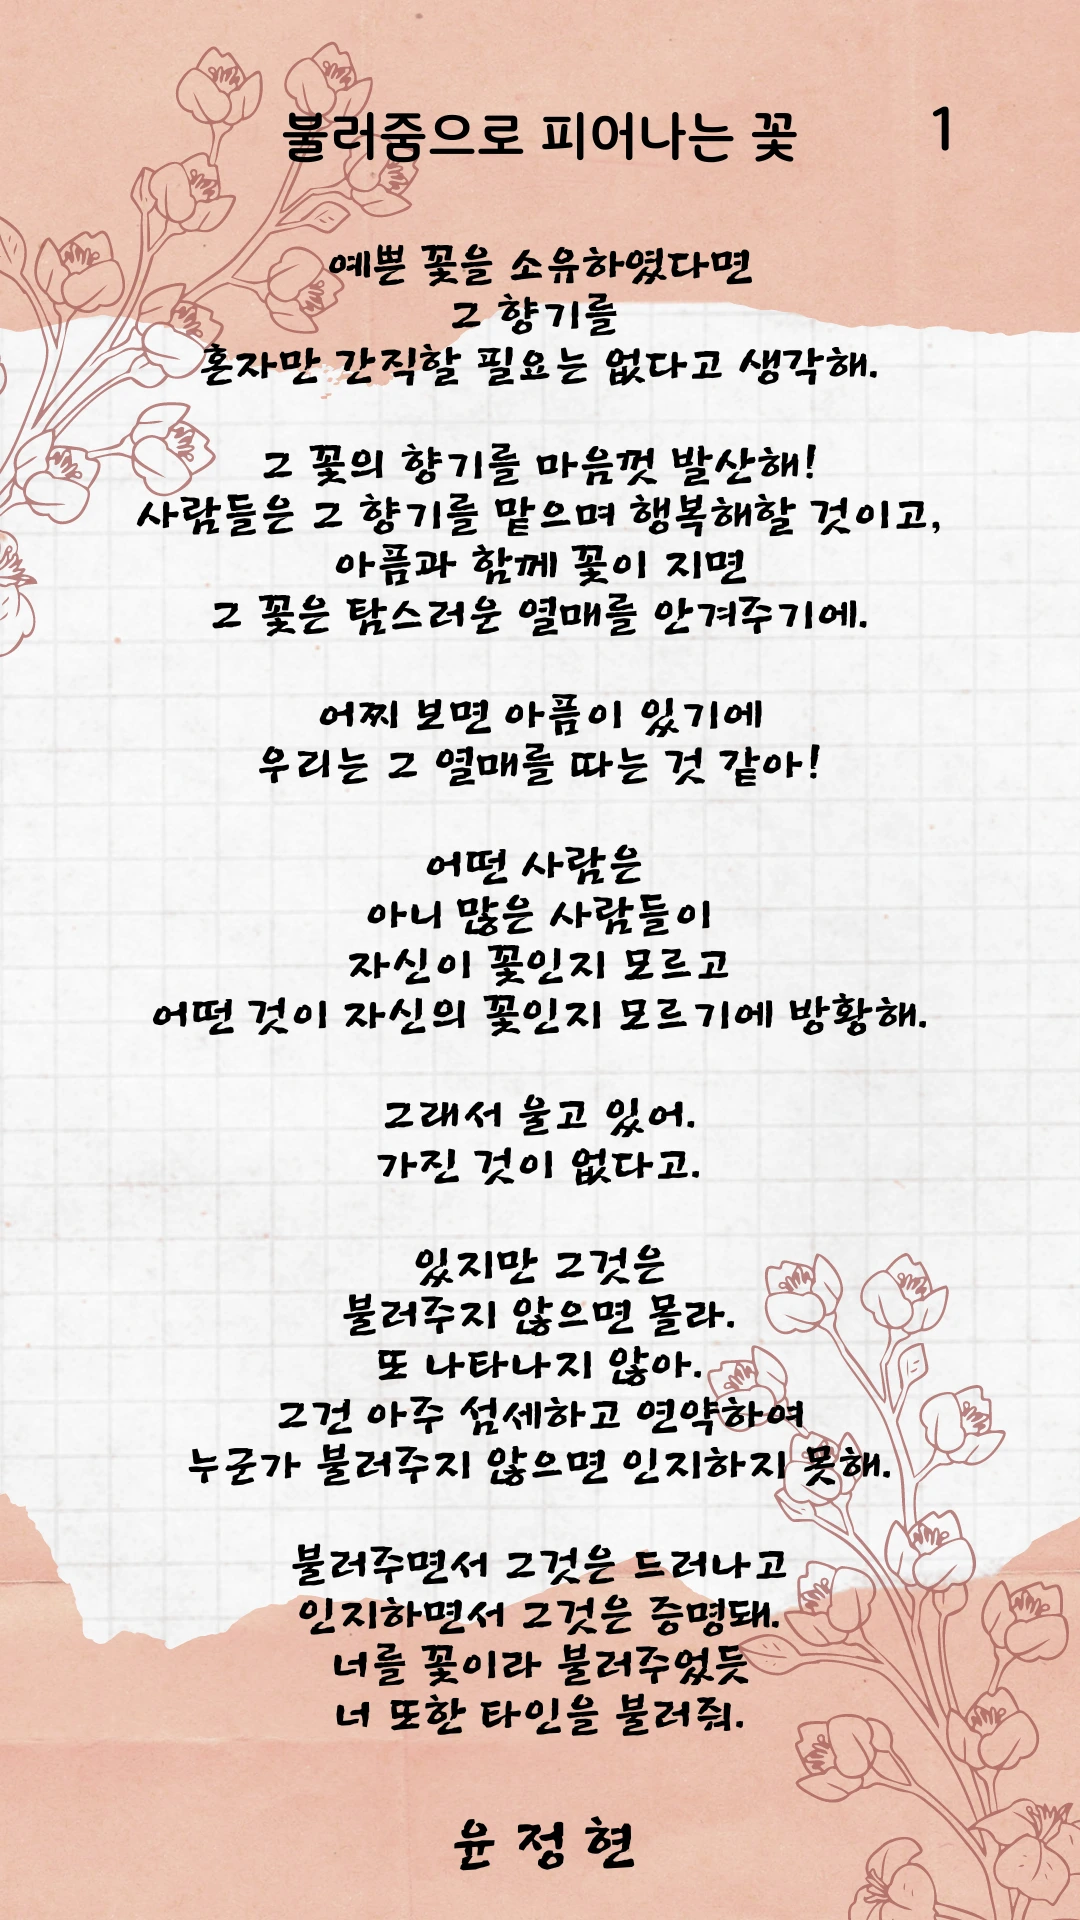 불러줌으로 피어나는 꽃
1
예쁜 꽃을 소유하였다면
그 향기를
혼자만 간직할 필요는 없다고 생각해.
그 꽃의 향기를 마음껏 발산해!
사람들은 그 향기를 맡으며 행복해할 것이고,
아픔과 함께 꽃이 지면
그 꽃은 탐스러운 열매를 안겨주기에.
어찌 보면 아픔이 있기에
우리는 그 열매를 따는 것 같아!
어떤 사람은
아니 많은 사람들이
자신이 꽃인지 모르고
어떤 것이 자신의 꽃인지 모르기에 방황해.
그래서 울고 있어.
가진 것이 없다고.
있지만 그것은
불러주지 않으면 몰라.
또 나타나지 않아.
그건 아주 섬세하고 연약하여
누군가 불러주지 않으면 인지하지 못해.
불러주면서 그것은 드러나고
인지하면서 그것은 증명돼.
너를 꽃이라 불러주었듯
너 또한 타인을 불러줘.
윤정현